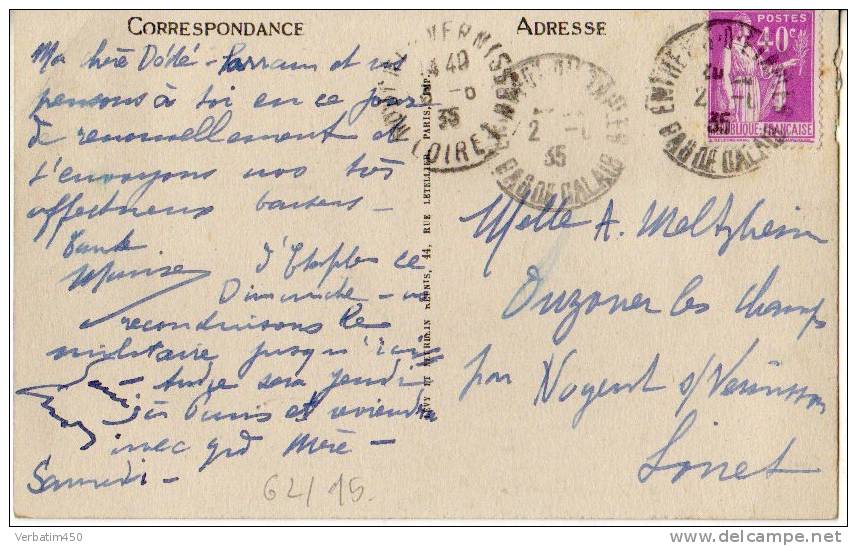 CORRESPONDANCE
Ma chère Dédé - Parrain et ns
pensons à toi en ce jour
de renouvellement et
t'envoyons nos très
affectueux baisers -
Tante
d'Etaples ce
Dimanche -
reconduisons le
militaire jusqu'ici
- André sera jeudi
Paris et viendra
avec grd Mère -
Samedi -
62/15.
LEVY ET NEURDEIN REUNIS, 44, RUE LETELLIER, PARIS, IMP.
ADRESSE
POSTES
40c
REPUBLIQUE FRANÇAISE
(LOIRET)
35
PAS DE CALAIS
35
PAS DE CALAIS
35
Melle A. Meltzheim
Ouzouer les Champs
par Nogent s/Vernisson
Loiret
Verbatim450
delcampe.net